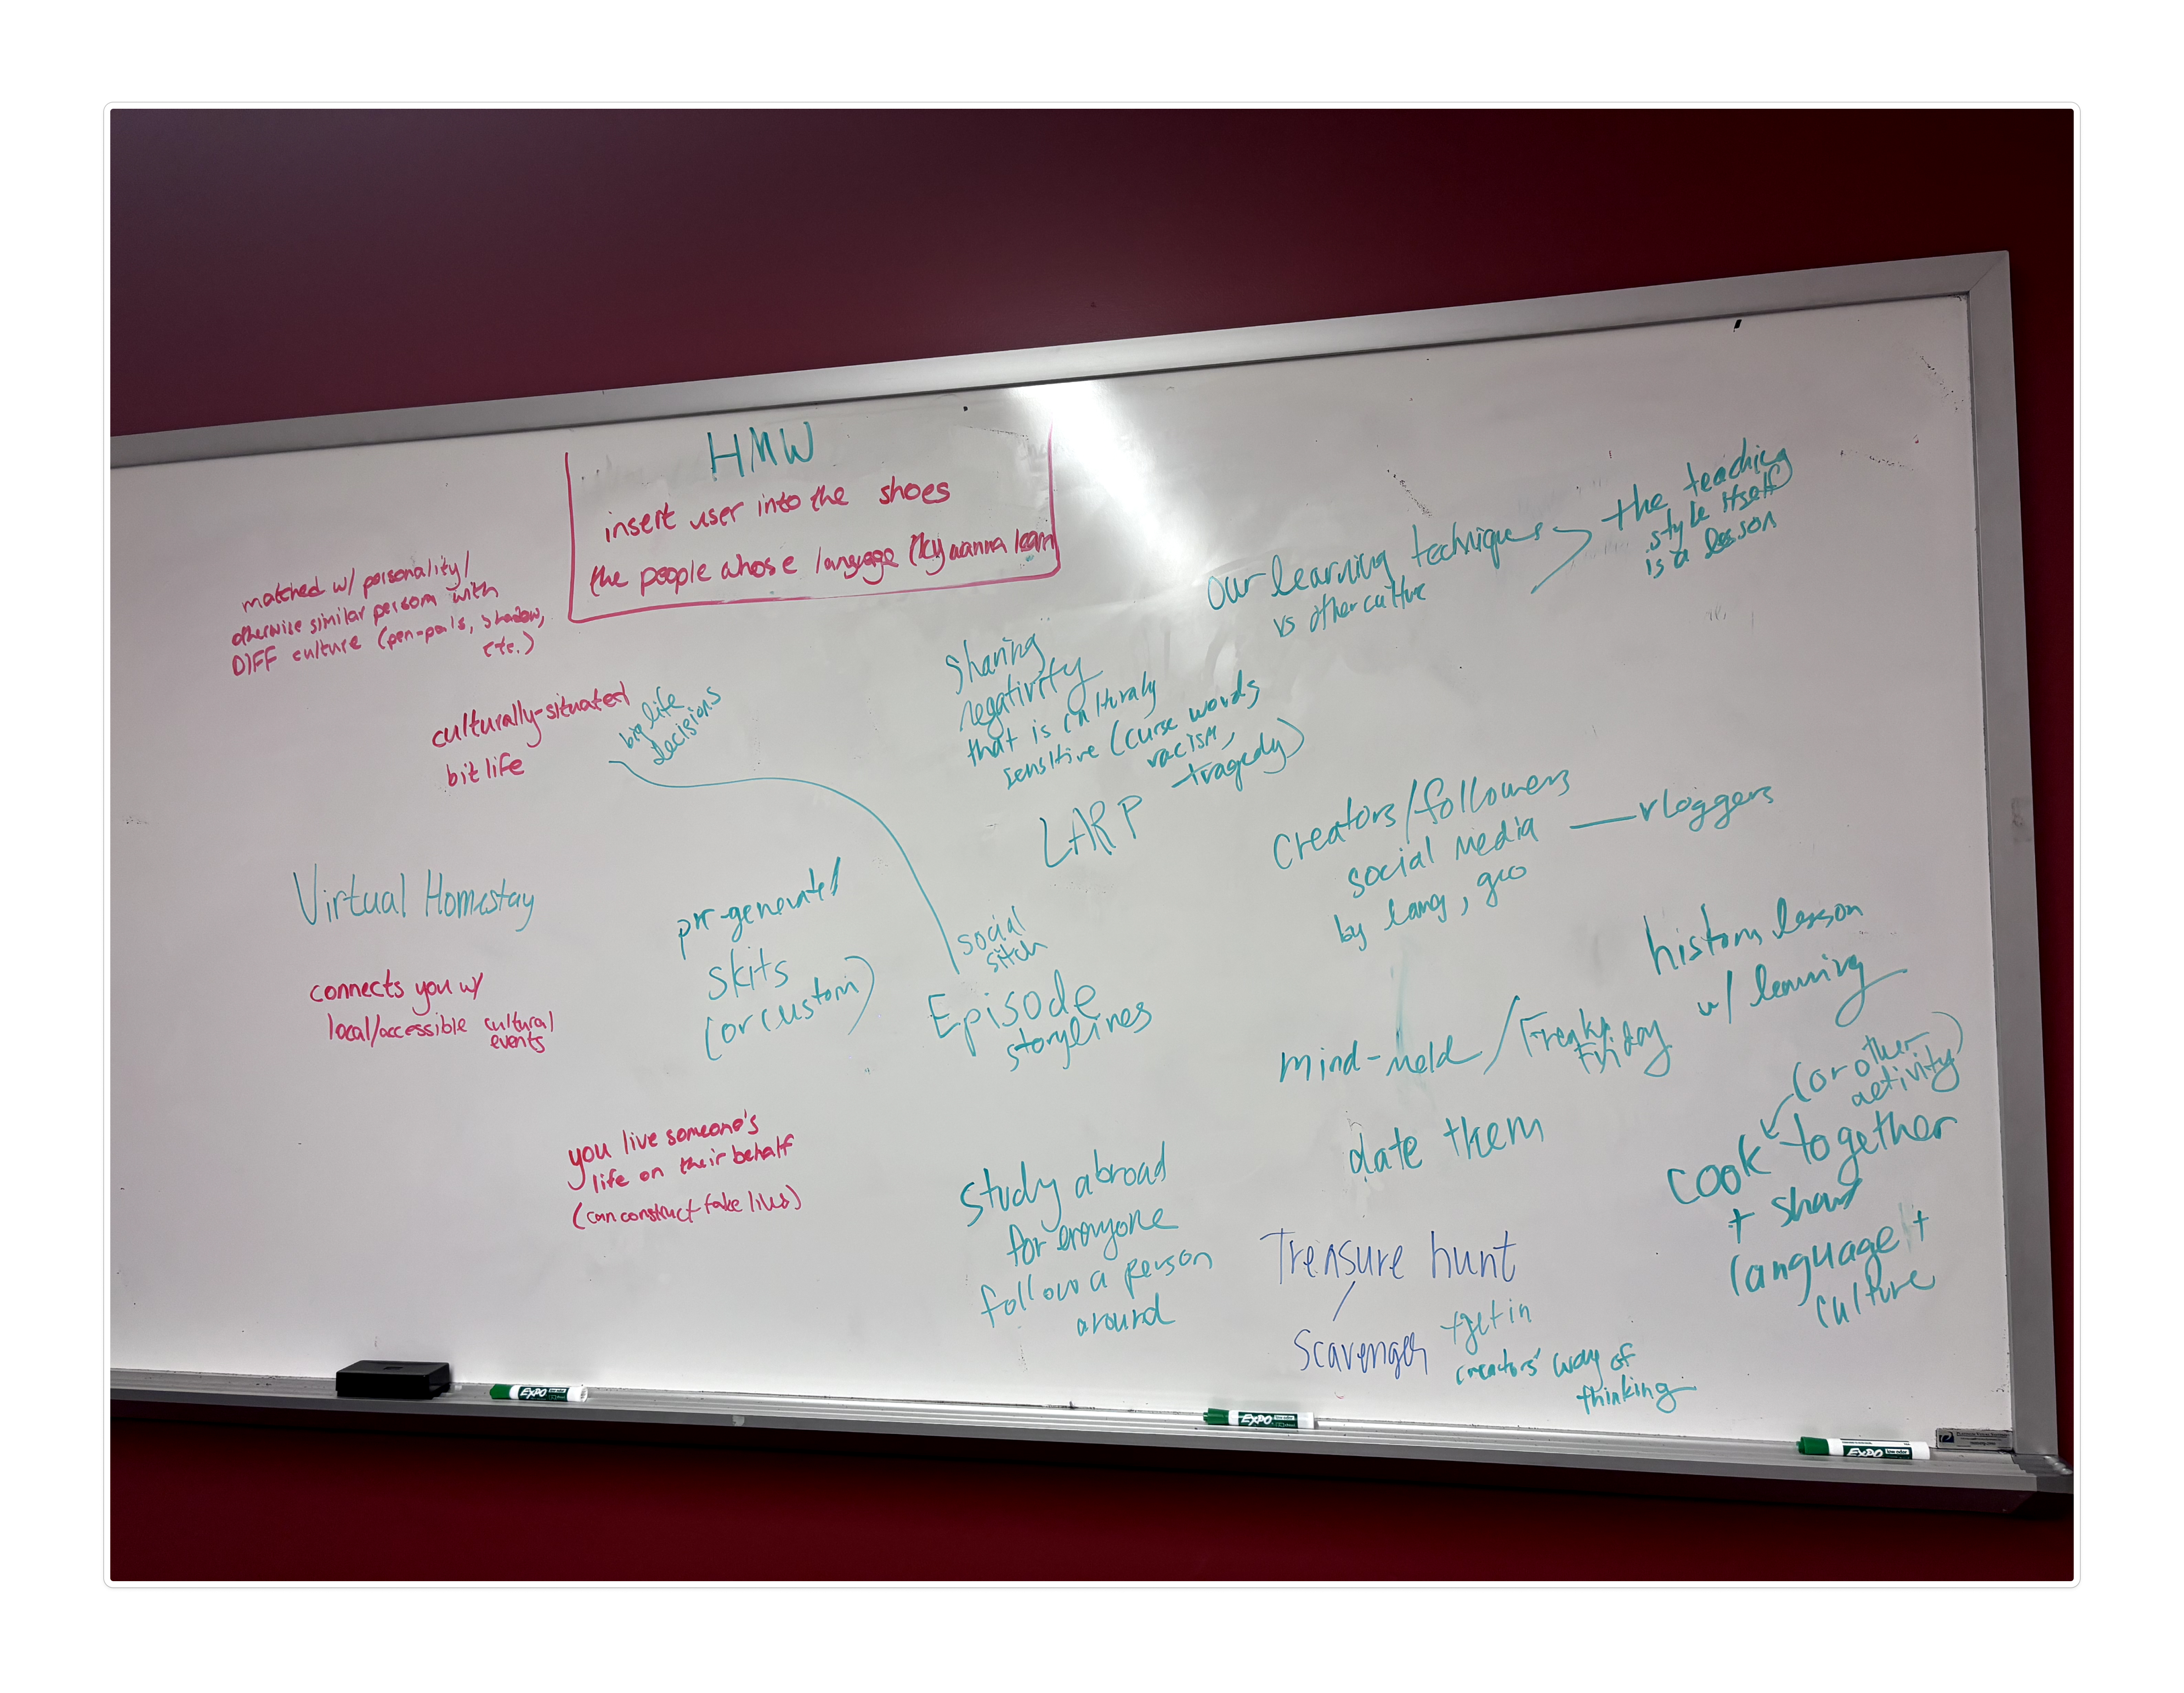 HMW
insert user into the shoes
the people whose language they wanna learn
matched w/ personality/
otherwise similar person with
DIFF culture (pen-pals, shadow,
etc.)
culturally-situated
bitlife
big life
decisions
Virtual Homestay
connects you w/
local/accessible cultural
events
pre-generated
skits
(or custom)
you live someone's
life on their behalf
(can construct fake lives)
sharing
negativity
that is culturaly
sensitive (curse words
racism,
tragedy)
LARP
social
sitch
Episode
storylines
study abroad
for everyone
follow a person
around
our learning techniques
vs other culture
the teaching
style itself
is a lesson
Creators/followers
social media
by lang, geo
vloggers
history lesson
w/ learning
mind-meld / Freaky
Friday
date them
(or other
activity)
cook together
+ share
language +
culture
Treasure hunt
Scavenger
+get in
creators' way of
thinking
EXPO
EXPO
EXPO